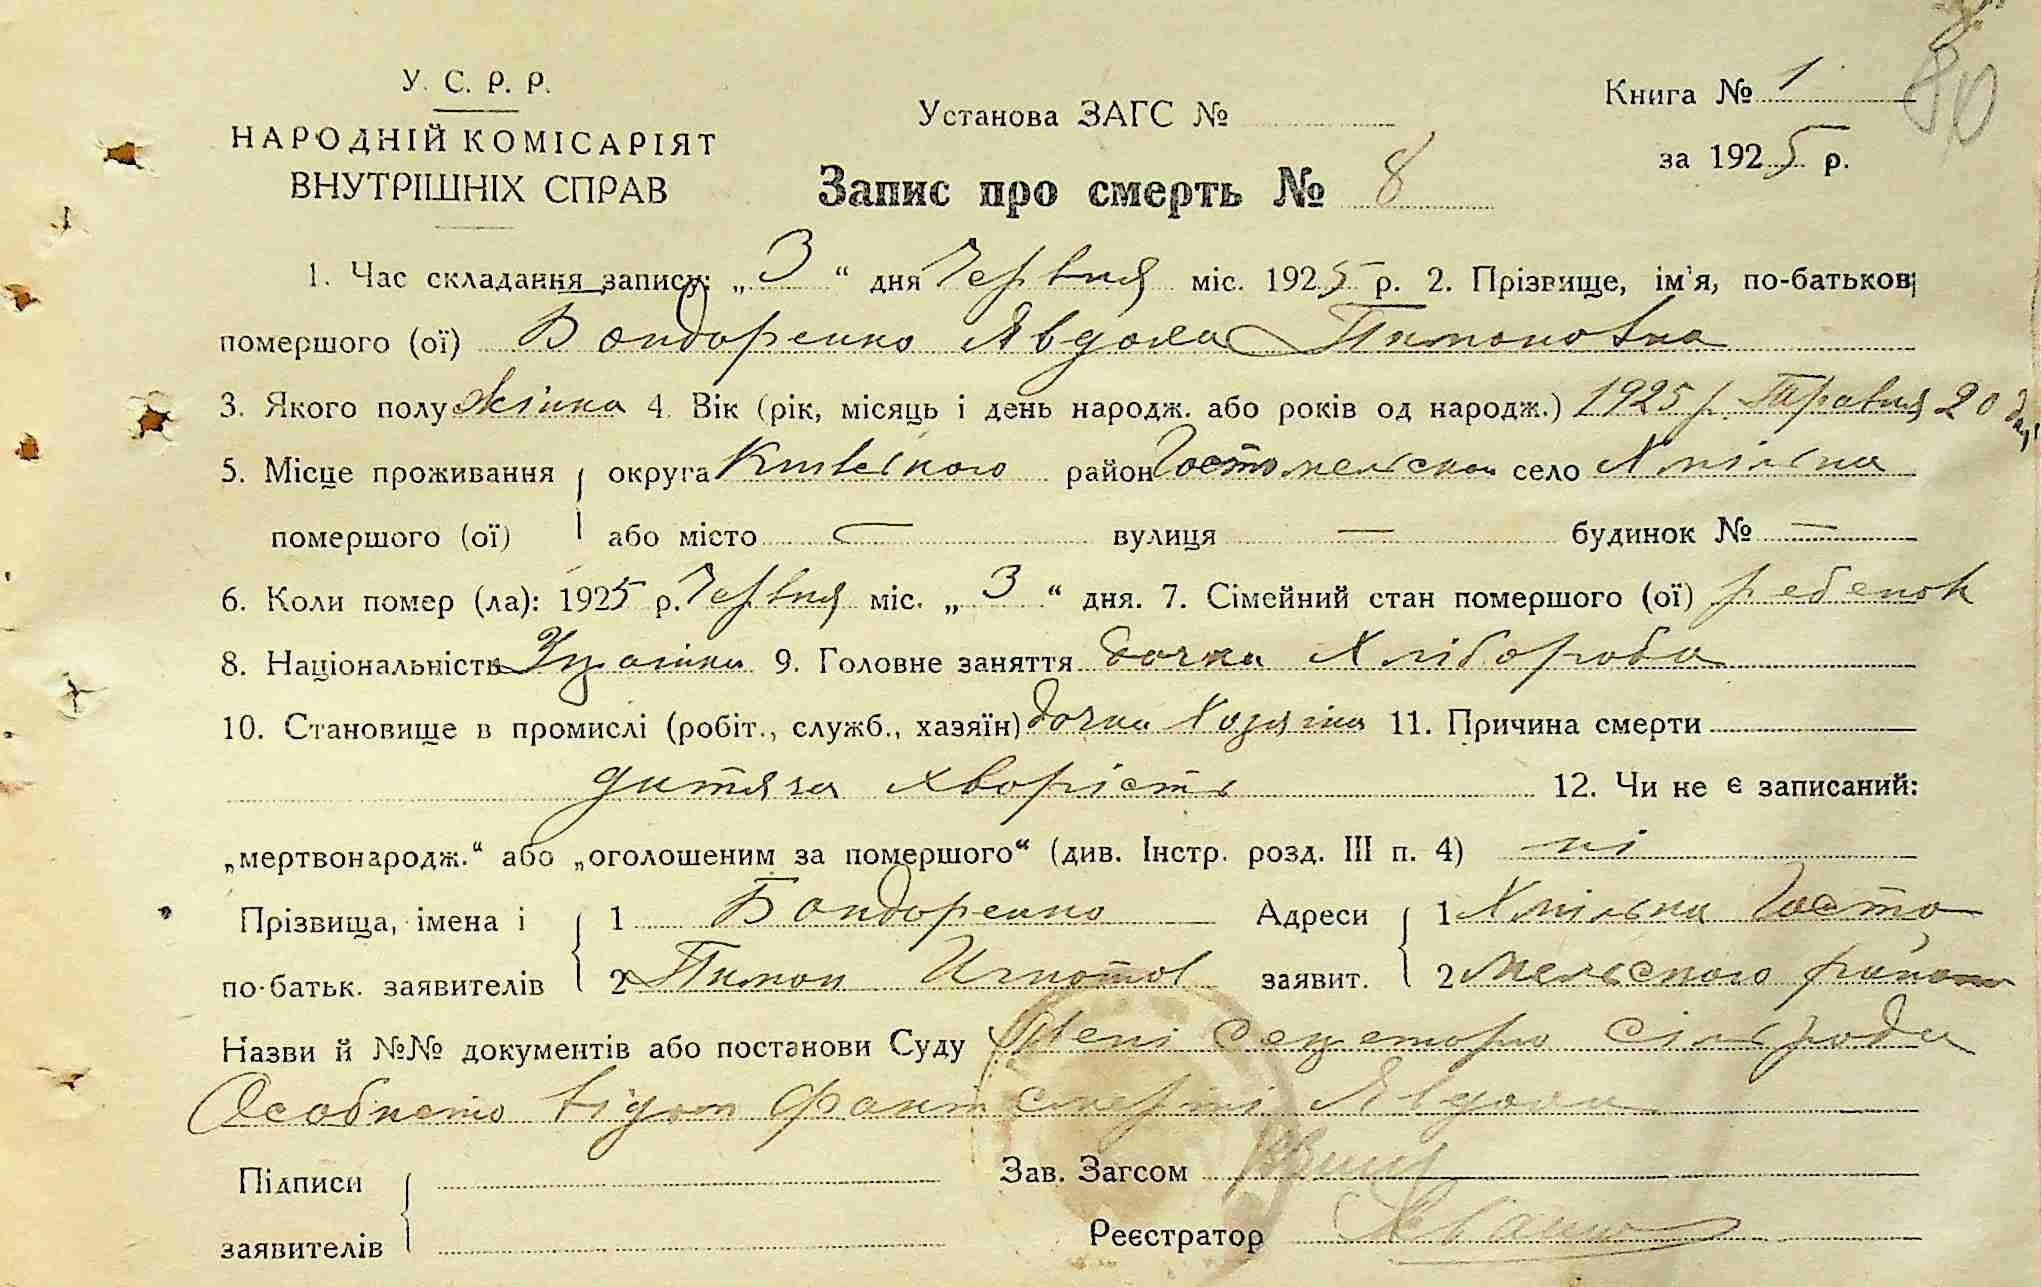 80
У. С. Р. Р.
НАРОДНІЙ КОМІСАРІЯТ
ВНУТРІШНІХ СПРАВ
Установа ЗАГС №
Книга № 1
за 1925 р.
Запис про смерть № 8
1. Час складання запису: „3“ дня Червня міс. 1925 р. 2. Прізвище, ім'я, по-батькові
помершого (ої) Бондоренко Явдоха Пимоновна
3. Якого полу жінка 4. Вік (рік, місяць і день народж. або років од народж.) 1925 р. Травня 20 дня
5. Місце проживання округа Київського район Гостомельськ село Хмільна
помершого (ої) або місто — вулиця — будинок № —
6. Коли помер (ла): 1925 р. Червня міс. „3“ дня. 7. Сімейний стан помершого (ої) ребенок
8. Національність 9. Головне заняття дочка Хлібороба
10. Становище в промислі (робіт., служб., хазяїн) дочка Хозяїна 11. Причина смерти
дитяча хворість 12. Чи не є записаний:
„мертвонародж.“ або „оголошеним за помершого“ (див. Інстр. розд. III п. 4) ні
Прізвища, імена і 1 Бондоренко Адреси 1 Хмільна Госто
по-батьк. заявителів 2 Пимон Игнатов заявит. 2 мельського району
Назви й №№ документів або постанови Суду Мені секеторю сільроди
Особисто відом факт смерті Явдохи
Підписи Зав. Загсом
заявителів Реєстратор